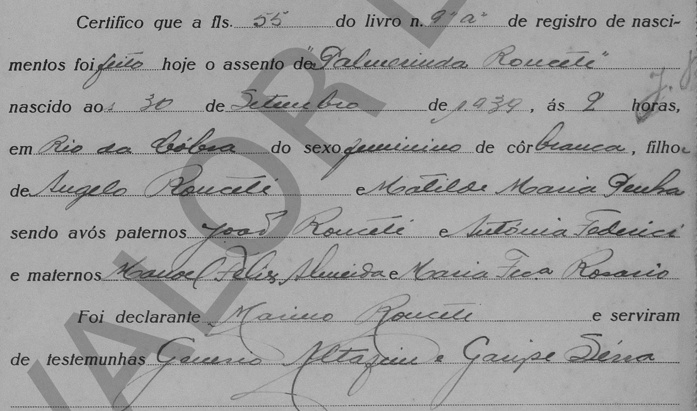 Certifico que a fls. 55 do livro n. 9"a" de registro de nasci-
mentos foi feito hoje o assento de "Palmerinda Ronceti"
nascido aos 30 de Setembro de 1939, ás 2 horas,
em Rio da Cóbra do sexo feminino de côr branca, filho
de Angelo Ronceti e Matilde Maria Penha
sendo avós paternos João Ronceti e Antónia Federici
e maternos Manoel Felix Almeida e Maria Rosario
Foi declarante Marino Ronceti e serviram
de testemunhas Altafim e Serra
VALOR